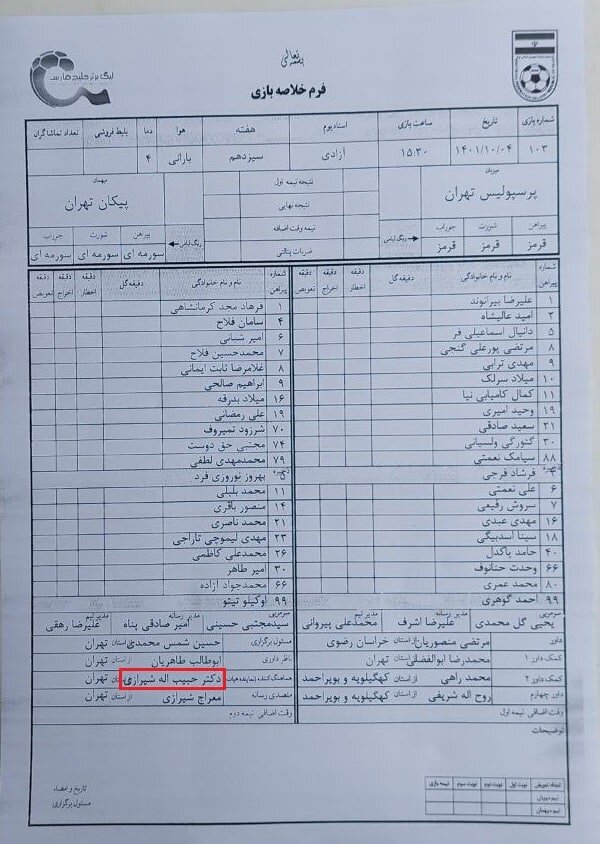 بسمه تعالی
لیگ برتر خلیج فارس
فرم خلاصه بازی
شماره بازی تاریخ ساعت بازی استادیوم هفته هوا دما بلیط فروشی تعداد تماشاگران
۱۰۳ ۱۴۰۱/۱۰/۰۴ ۱۵:۳۰ آزادی سیزدهم بارانی ۴
میزبان نتیجه نیمه اول میهمان
پرسپولیس تهران نتیجه نهایی پیکان تهران
پیراهن شورت جوراب رنگ لباس نیمه وقت اضافه رنگ لباس پیراهن شورت جوراب
قرمز قرمز قرمز ضربات پنالتی سورمه ای سورمه ای سورمه ای
شماره پیراهن نام و نام خانوادگی دقیقه گل دقیقه اخطار دقیقه اخراج دقیقه تعویض شماره پیراهن نام و نام خانوادگی دقیقه گل دقیقه اخطار دقیقه اخراج دقیقه تعویض
۱ علیرضا بیرانوند فرهاد مجد کرمانشاهی
۲ امید عالیشاه ۴ سامان فلاح
۵ دانیال اسماعیلی فر ۶ امیر شبانی
۸ مرتضی پورعلی گنجی ۷ محمدحسین فلاح
۹ مهدی ترابی ۸ غلامرضا ثابت ایمانی
۱۰ میلاد سرلک ۹ ابراهیم صالحی
۱۱ کمال کامیابی نیا ۱۶ میلاد بدرقه
۱۹ وحید امیری ۱۹ علی رمضانی
۲۱ سعید صادقی ۷۰ شرزود تمیروف
۳۰ گئورگی ولسیانی ۷۴ مجتبی حق دوست
۸۸ سیامک نعمتی ۷۹ محمدمهدی لطفی
ذخیره فرشاد فرجی ذخیره بهروز نوروزی فرد
۶ علی نعمتی ۱۱ محمد بلبلی
۷ سروش رفیعی ۱۴ منصور باقری
۱۶ مهدی عبدی ۲۱ محمد ناصری
۱۸ سینا اسدبیگی ۲۳ مهدی لیموچی تاراجی
۴۰ حامد پاکدل ۲۶ محمدعلی کاظمی
۶۶ وحدت حنانوف ۳۰ امیر طاهر
۸۰ محمد عمری ۶۶ محمدجواد آزاده
۹۹ احمد گوهری ۹۹ اوکیلو تیتو
سرمربی یحیی گل محمدی مدیر رسانه علیرضا اشرف مدیر تیم محمدعلی پیروانی سرمربی سیدمجتبی حسینی مدیر رسانه امیر صادقی پناه مدیر تیم علیرضا رهقی
داور مرتضی منصوریان از استان خراسان رضوی مسئول برگزاری حسین شمس محمدی از استان تهران
کمک داور ۱ محمدرضا ابوالفضلی از استان تهران ناظر داوری ابوطالب طاهریان از استان تهران
کمک داور ۲ محمد راهی از استان کهگیلویه و بویراحمد هماهنگ کننده/نماینده هیات دکتر حبیب اله شیرازی از استان تهران
داور چهارم روح اله شریفی از استان کهگیلویه و بویراحمد متصدی رسانه معراج شیرازی از استان تهران
وقت اضافی نیمه اول وقت اضافی نیمه دوم
توضیحات
تعداد تعویض نوبت اول نوبت دوم نوبت سوم نیمه بازی
تیم میزبان
تیم میهمان
تاریخ و امضاء
مسئول برگزاری